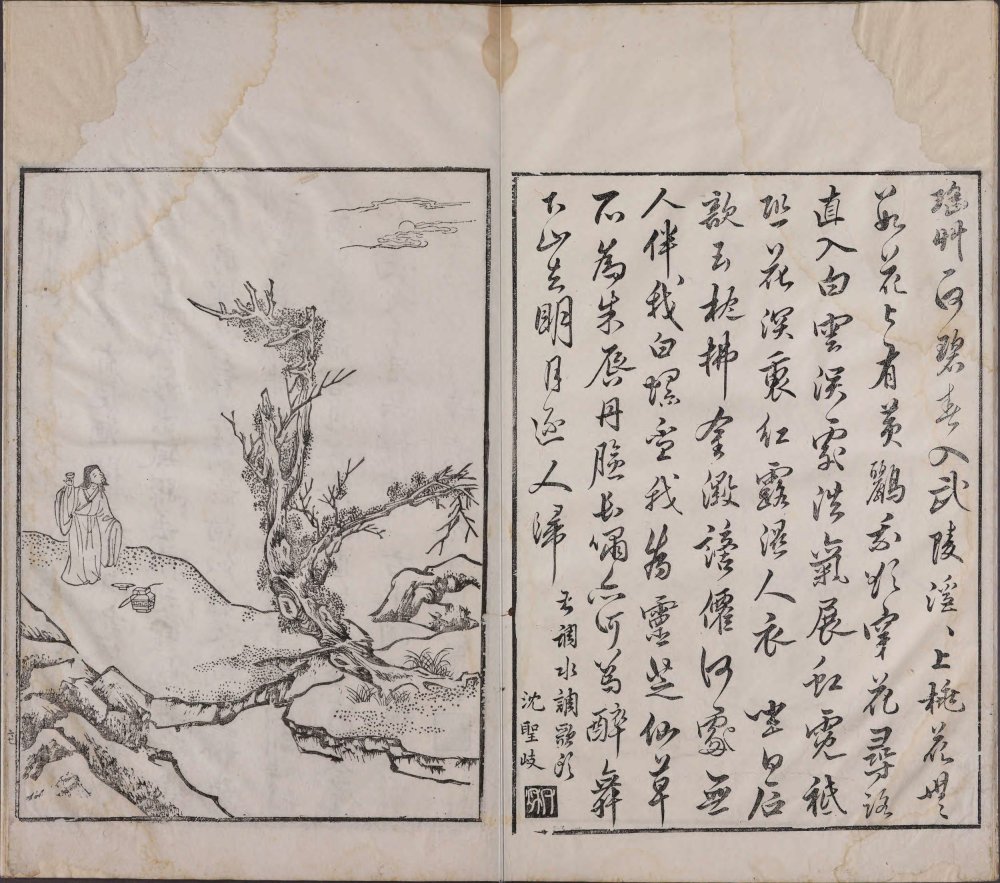 瑤艸一何碧春入武陵溪〻上桃花無
數花上有黃鸝我欲穿花尋路
直入白雲深處浩氣展虹霓祗
恐花深裏紅露濕人衣　坐白石
欹玉枕拂金徽謫僊何處無
人伴我白螺盃我為靈芝仙草
不為朱唇丹臉長嘯亦何為醉舞
下山去明月逐人歸
右調水調歌頭
沈聖岐